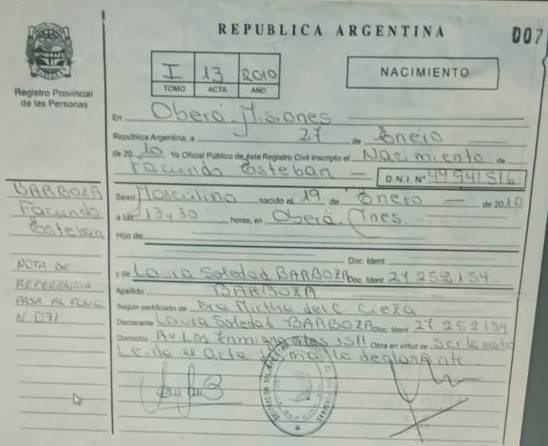 REPUBLICA ARGENTINA
007
Registro Provincial
de las Personas
I 13 2010
TOMO ACTA AÑO
NACIMIENTO
En Oberá - Misiones
República Argentina, a 27 de Enero
de 2010 Yo Oficial Público de éste Registro Civil inscripto el Nacimiento de
Facundo Esteban — D.N.I. Nº 49941516
BARBOZA
Facundo
Esteban
Sexo Masculino nacido el 19 de Enero — de 2010
a las 13 y 30 horas, en Oberá. Mnes.
Hijo de
Doc. Ident.
y de Laura Soledad BARBOZA Doc. Ident. 27 252 154
Apellido BARBOZA
ACTA DE
REFERENCIA
PASA AL FOLIO
N 071
Según certificado de Dra Mirtha del C. Cieza
Declarante Laura Soledad BARBOZA Doc. Ident 27 252 154
Domicilio Av Los Inmigrantes Obra en virtud de Ser la madre
Leida el acta la declarante